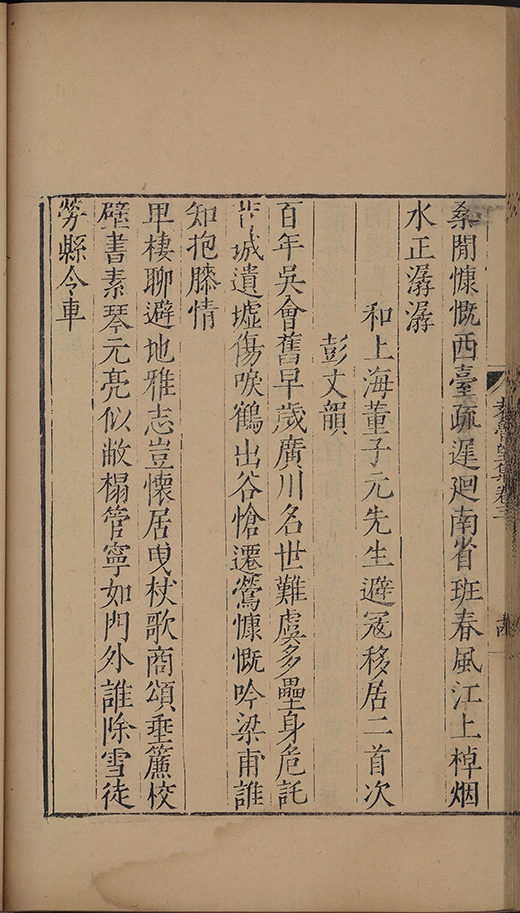 桑閒慷慨西臺疏遲迴南省班春風江上棹烟
水正潺潺
和上海董子元先生避寇移居二首次
彭丈韻
百年吳會舊早歲廣川名世難虞多壘身危託
苦城遺墟傷唳鶴出谷愴遷鶯慷慨吟梁甫誰
知抱膝情
卑棲聊避地雅志豈懷居曳杖歌商頌垂簾校
壁書素琴元亮似敝榻管寧如門外誰除雪徒
勞縣令車